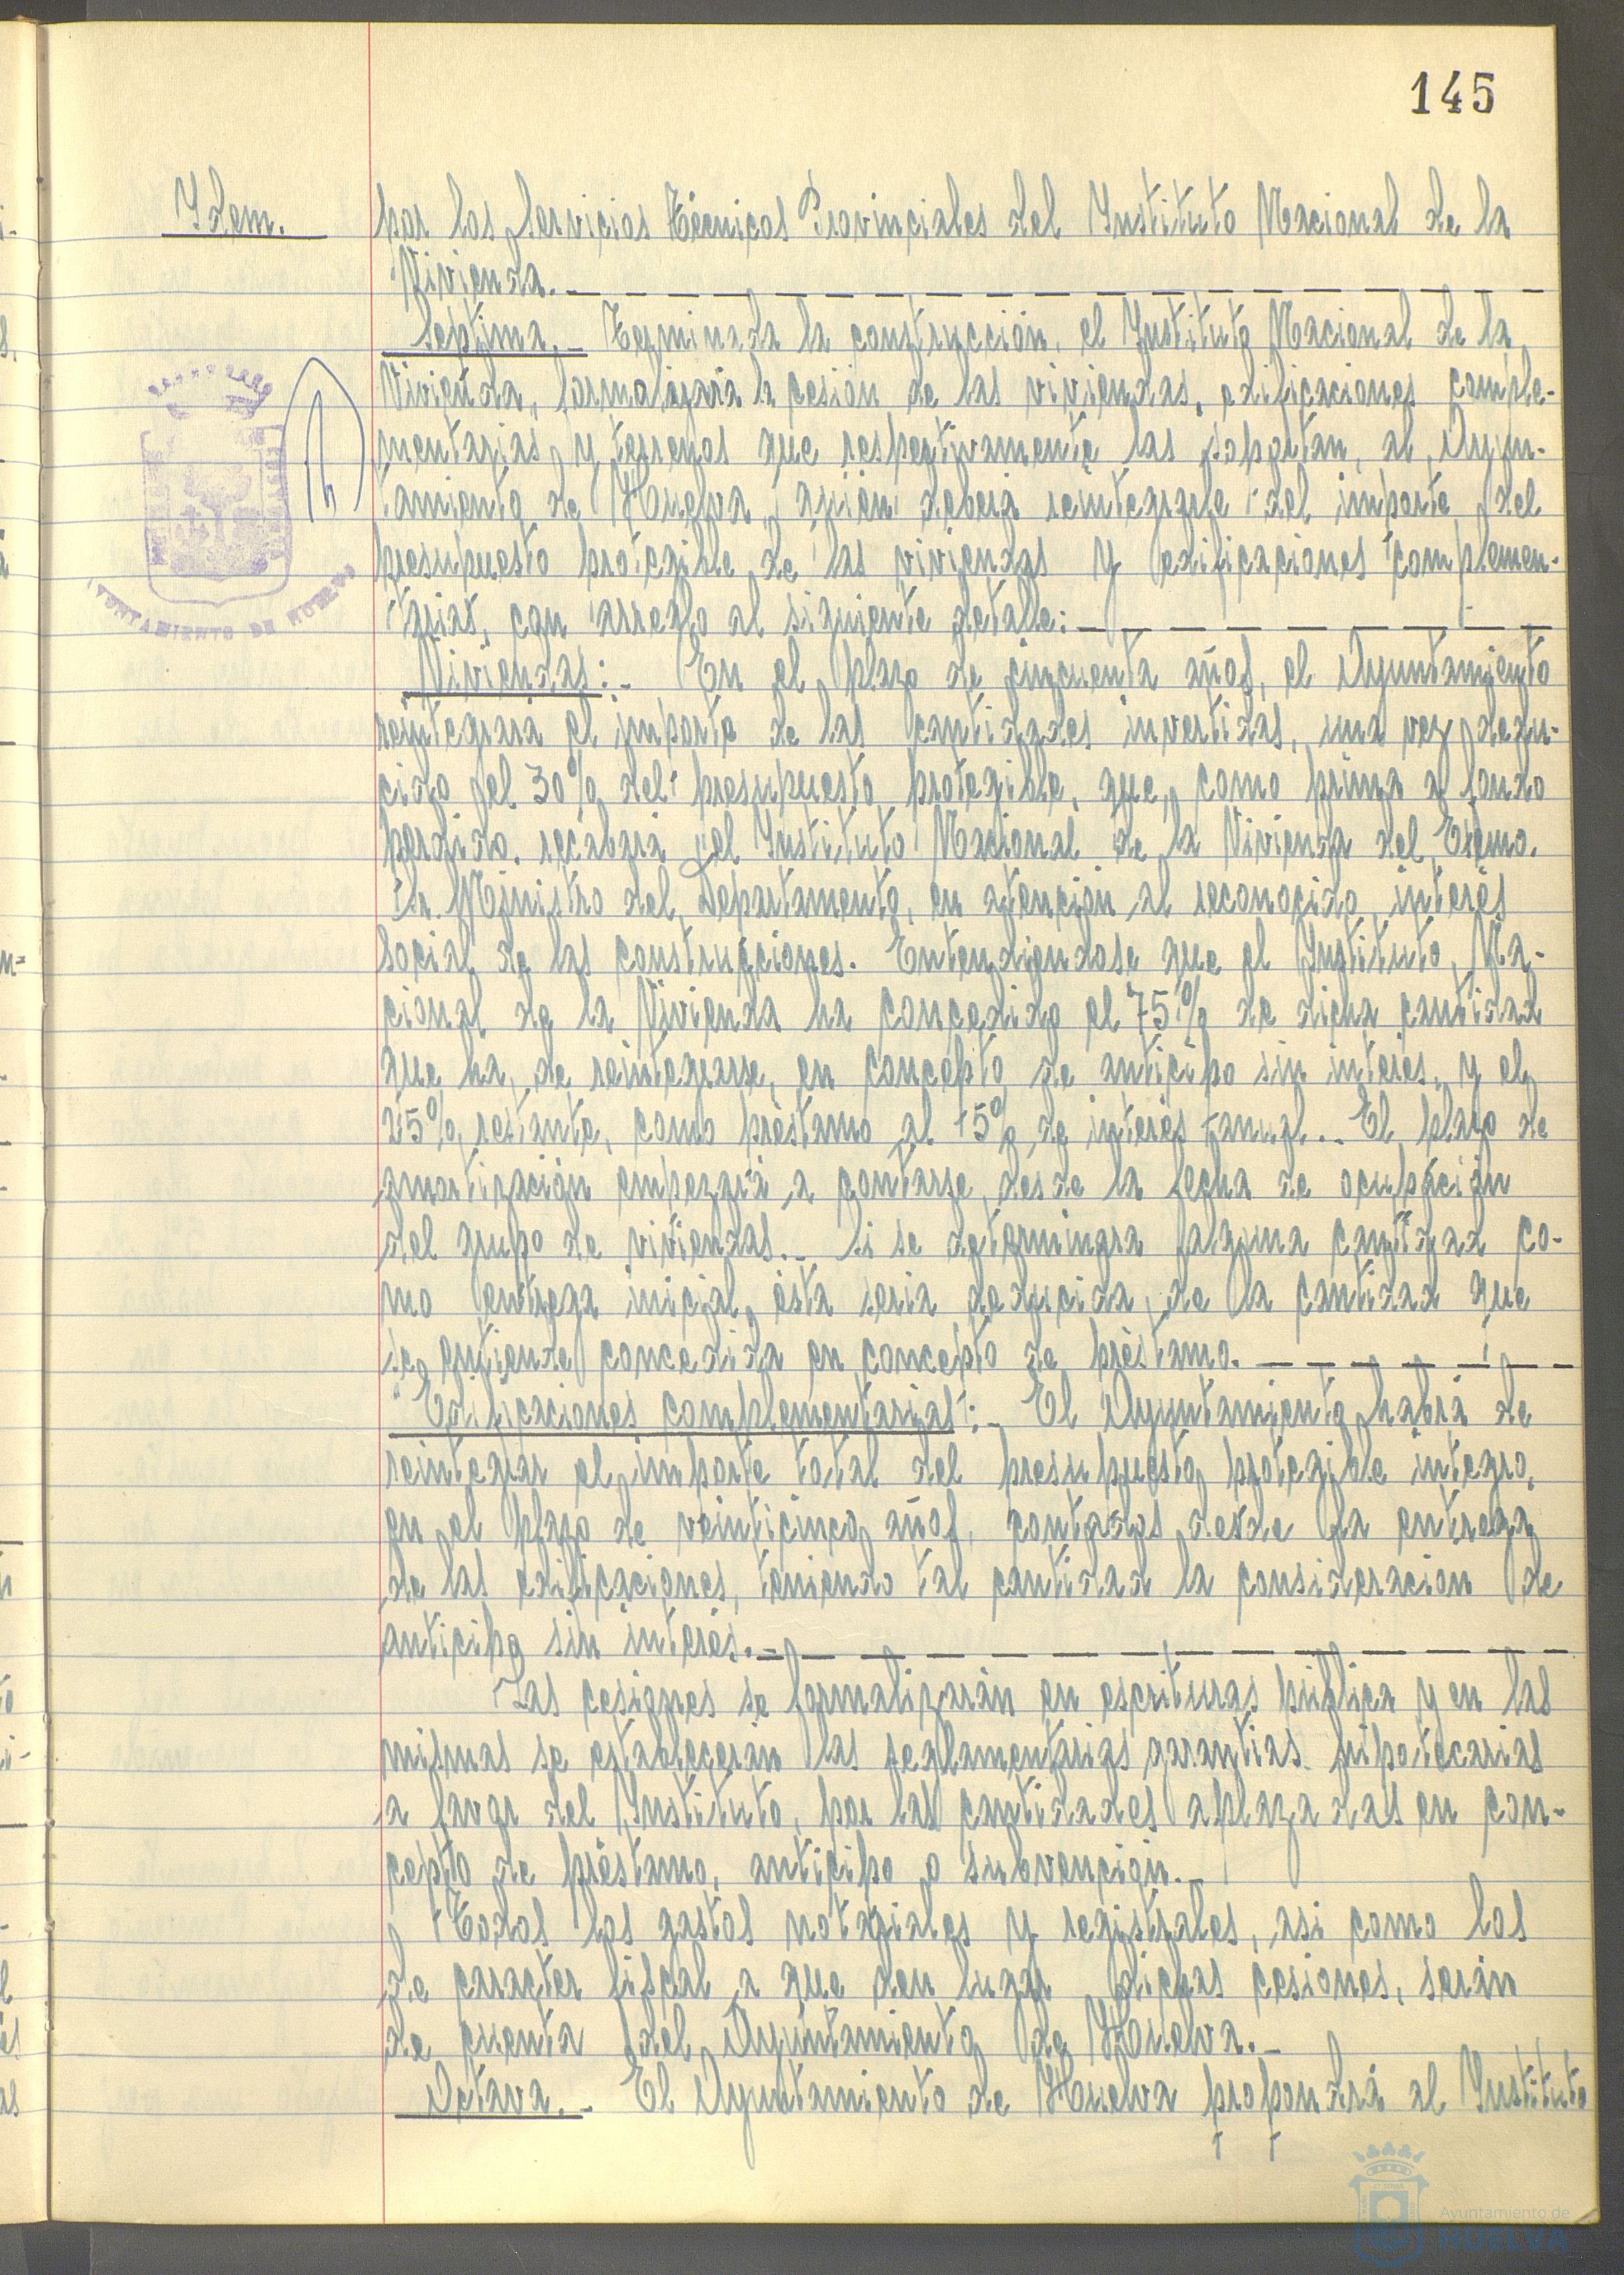 145
Idem.
por los Servicios Técnicos Provinciales del Instituto Nacional de la
Vivienda.
Septima.- Terminada la construcción, el Instituto Nacional de la
Vivienda, formalizará la cesión de las viviendas, edificaciones comple-
mentarias y terrenos que respectivamente las soportan, al Ayun-
tamiento de Huelva, quien deberá reintegrarle del importe del
presupuesto protegible de las viviendas y edificaciones complemen-
tarias, con arreglo al siguiente detalle:-
Viviendas:- En el plazo de cincuenta años, el Ayuntamiento
reintegrará el importe de las cantidades invertidas, una vez dedu-
cido el 30% del presupuesto protegible, que, como prima a fondo
perdido, recabará el Instituto Nacional de la Vivienda del Excmo.
Sr. Ministro del Departamento, en atención al reconocido interés
social de las construcciones. Entendiendose que el Instituto Na-
cional de la Vivienda ha concedido el 75% de dicha cantidad
que ha de reintegrarse, en concepto de anticipo sin interés, y el
25% restante, como préstamo al 5% de interés anual.- El plazo de
amortización empezará a contarse desde la fecha de ocupación
del grupo de viviendas.- Si se determinara alguna cantidad co-
mo entrega inicial, ésta sería deducida de la cantidad que
se entiende concedida en concepto de préstamo.
Edificaciones complementarias:- El Ayuntamiento habrá de
reintegrar el importe total del presupuesto protegible integro,
en el plazo de veinticinco años, contados desde la entrega
de las edificaciones, teniendo tal cantidad la consideración de
anticipo sin interés.-
Las cesiones se formalizarán en escrituras pública y en las
mismas se establecerán las reglamentarias garantias hipotecarias
a favor del Instituto, por las cantidades aplazadas en con-
cepto de préstamo, anticipo o subvención.-
Todos los gastos notariales y registrales, asi como los
de caracter fiscal a que den lugar dichas cesiones, serán
de cuenta del Ayuntamiento de Huelva.-
Octava.- El Ayuntamiento de Huelva propondrá al Instituto
AYUNTAMIENTO DE HUELVA
Ayuntamiento de
HUELVA